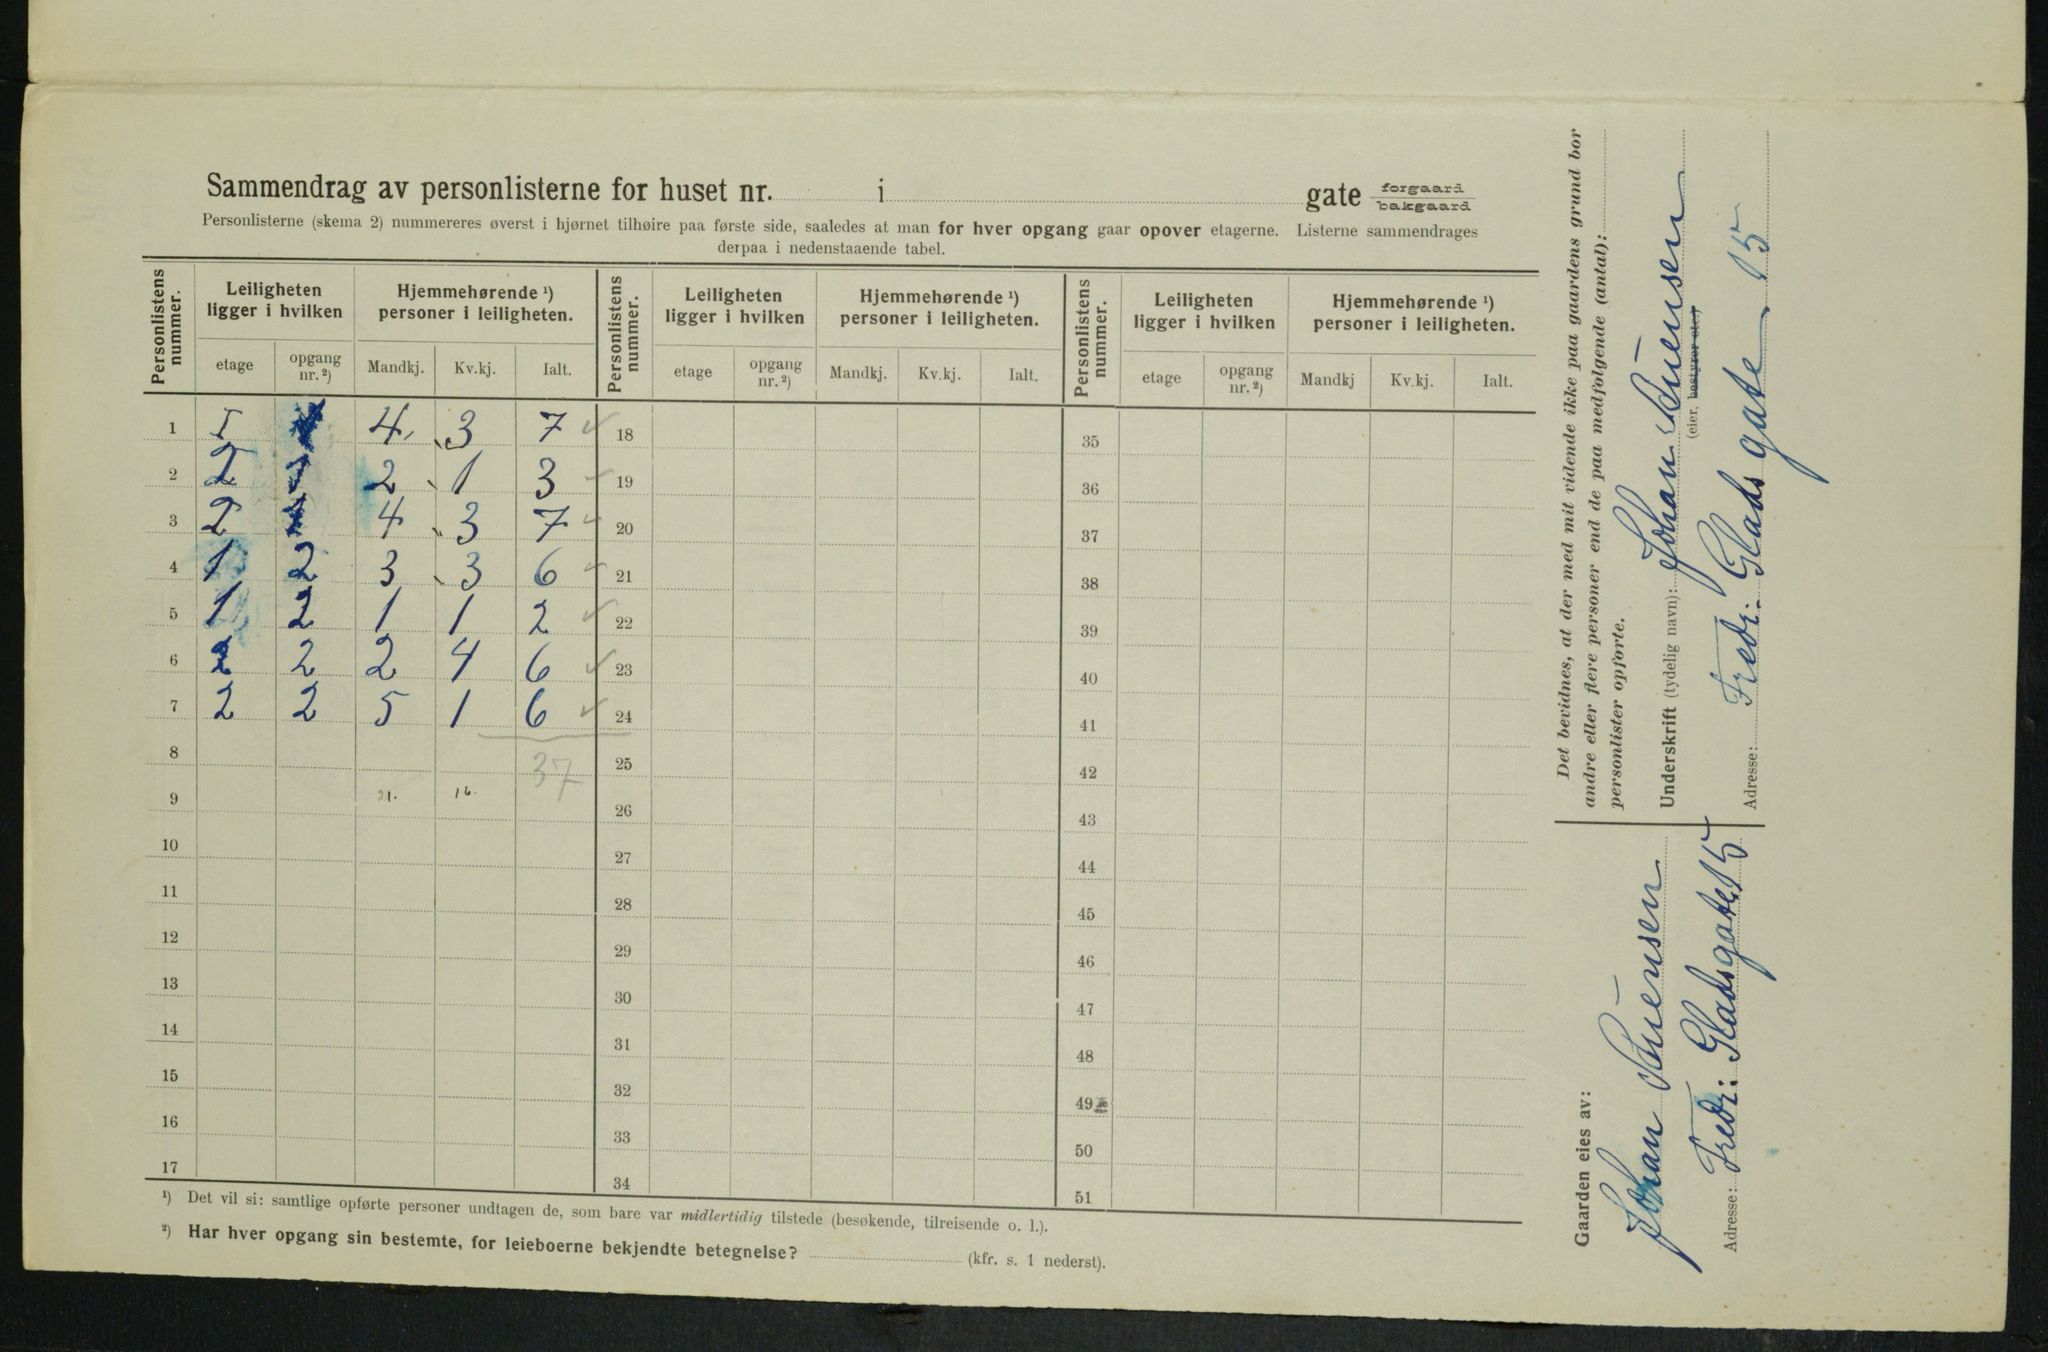 Sammendrag av personlisterne for huset nr. i gate forgaard bakgaard
Personlisterne (skema 2) nummereres øverst i hjørnet tilhøire paa første side, saaledes at man for hver opgang gaar opover etagerne. Listerne sammendrages
derpaa i nedenstaaende tabel.
Personlistens nummer. Leiligheten ligger i hvilken Hjemmehørende ¹) personer i leiligheten. Personlistens nummer. Leiligheten ligger i hvilken Hjemmehørende ¹) personer i leiligheten. Personlistens nummer. Leiligheten ligger i hvilken Hjemmehørende ¹) personer i leiligheten.
etage opgang nr. ²) Mandkj. Kv.kj. Ialt. etage opgang nr. ²) Mandkj. Kv.kj. Ialt. etage opgang nr. ²) Mandkj Kv.kj. Ialt.
1 I 4 3 7 ✓ 18 35
2 2 1 2 1 3 ✓ 19 36
3 2 4 3 7 ✓ 20 37
4 1 2 3 3 6 ✓ 21 38
5 1 2 1 1 2 ✓ 22 39
6 2 2 2 4 6 ✓ 23 40
7 2 2 5 1 6 ✓ 24 41
8 37 25 42
9 21. 16. 26 43
10 27 44
11 28 45
12 29 46
13 30 47
14 31 48
15 32 49
16 33 50
17 34 51
¹) Det vil si: samtlige opførte personer undtagen de, som bare var midlertidig tilstede (besøkende, tilreisende o. l.).
²) Har hver opgang sin bestemte, for leieboerne bekjendte betegnelse? (kfr. s. 1 nederst).
Det bevidnes, at der med mit vidende ikke paa gaardens grund bor
andre eller flere personer end de paa medfølgende (antal):
personlister opførte.
Underskrift (tydelig navn): Johan
(eier, bestyrer etc.)
Adresse: Fredr. Glads gate 15
Gaarden eies av:
Johan
Adresse: Fredr: Gladsgate 15